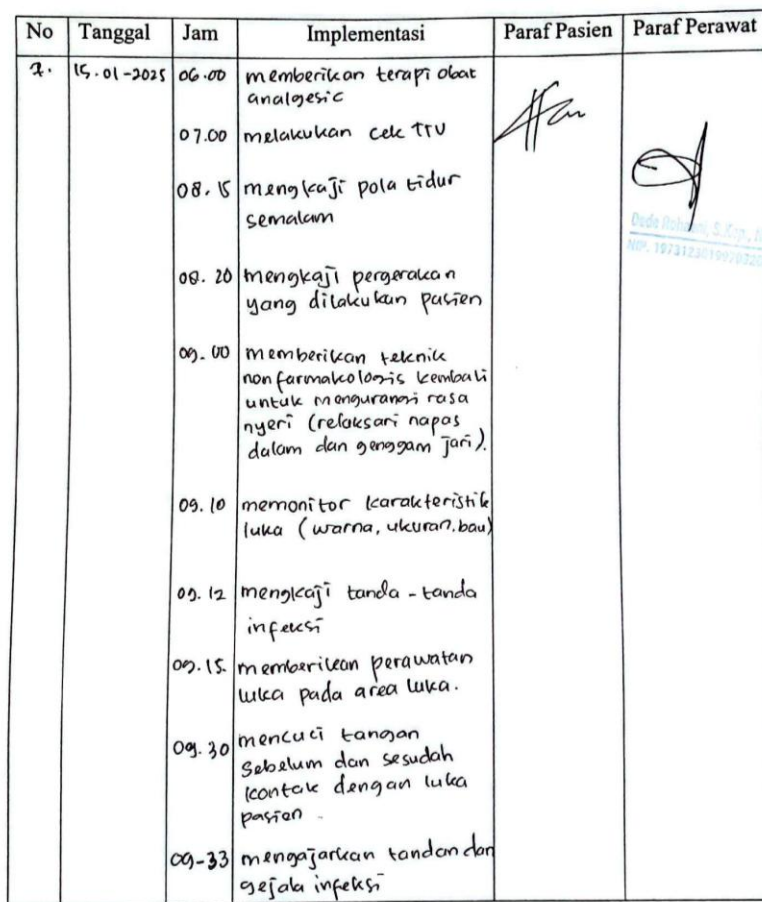 No Tanggal Jam Implementasi Paraf Pasien Paraf Perawat
7. 15-01-2025 06.00 memberikan terapi obat
analgesic
07.00 melakukan cek TTV
08.15 mengkaji pola tidur
semalam
08.20 mengkaji pergerakan
yang dilakukan pasien
09.00 memberikan teknik
nonfarmakologis kembali
untuk mengurangi rasa
nyeri (relaksasi napas
dalam dan genggam jari).
09.10 memonitor karakteristik
luka (warna, ukuran, bau)
09.12 mengkaji tanda-tanda
infeksi
09.15. memberikan perawatan
luka pada area luka.
09.30 mencuci tangan
sebelum dan sesudah
kontak dengan luka
pasien.
09-33 mengajarkan tandan dan
gejala infeksi